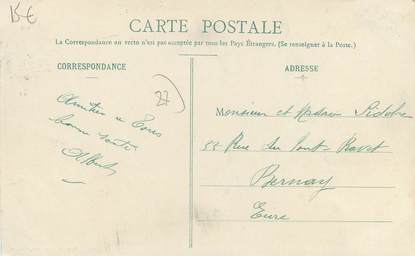 15 €
CARTE POSTALE
La Correspondance au recto n'est pas acceptée par tous les Pays Étrangers. (Se renseigner à la Poste.)
CORRESPONDANCE
27
Amitiés à Tous
bonne santé
Albert
ADRESSE
Monsieur et Madame
55 Rue du Pont-
Bernay
Eure